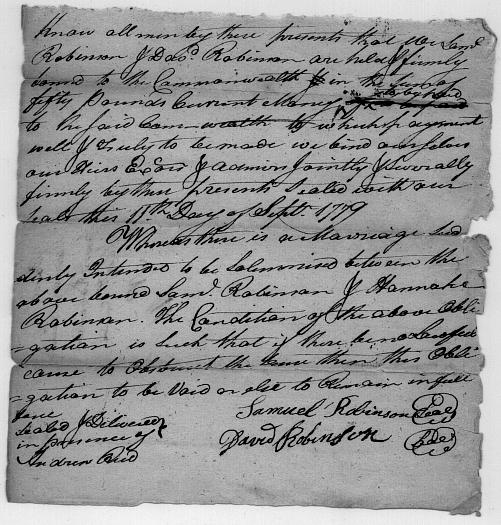 Know all men by these presents that we Saml.
Robinson & David. Robinson are held & firmly
bound to the Commonwealth in the sum of
fifty Pounds Current Money to be paid
to the said Common-wealth to which payment
well & Truly to be made we bind ourselves
our Heirs Exors & admin Jointly & severally
firmly by these presents Sealed with our
seals this 11th Day of Septr. 1779
Whereas there is a Marriage sud
dinly Intended to be Solemnised between the
above bound Saml. Robinson & Hannah
Robinson. The Condition of the above Obli
=gation is such that if there be no Lawfull
cause to Obstruct the same then this Obli
=gation to be Void or else to Remain in full
force
Sealed & Delivered
in presence of
Andrew Reid
Samuel Robinson Seal
David Robinson Seal